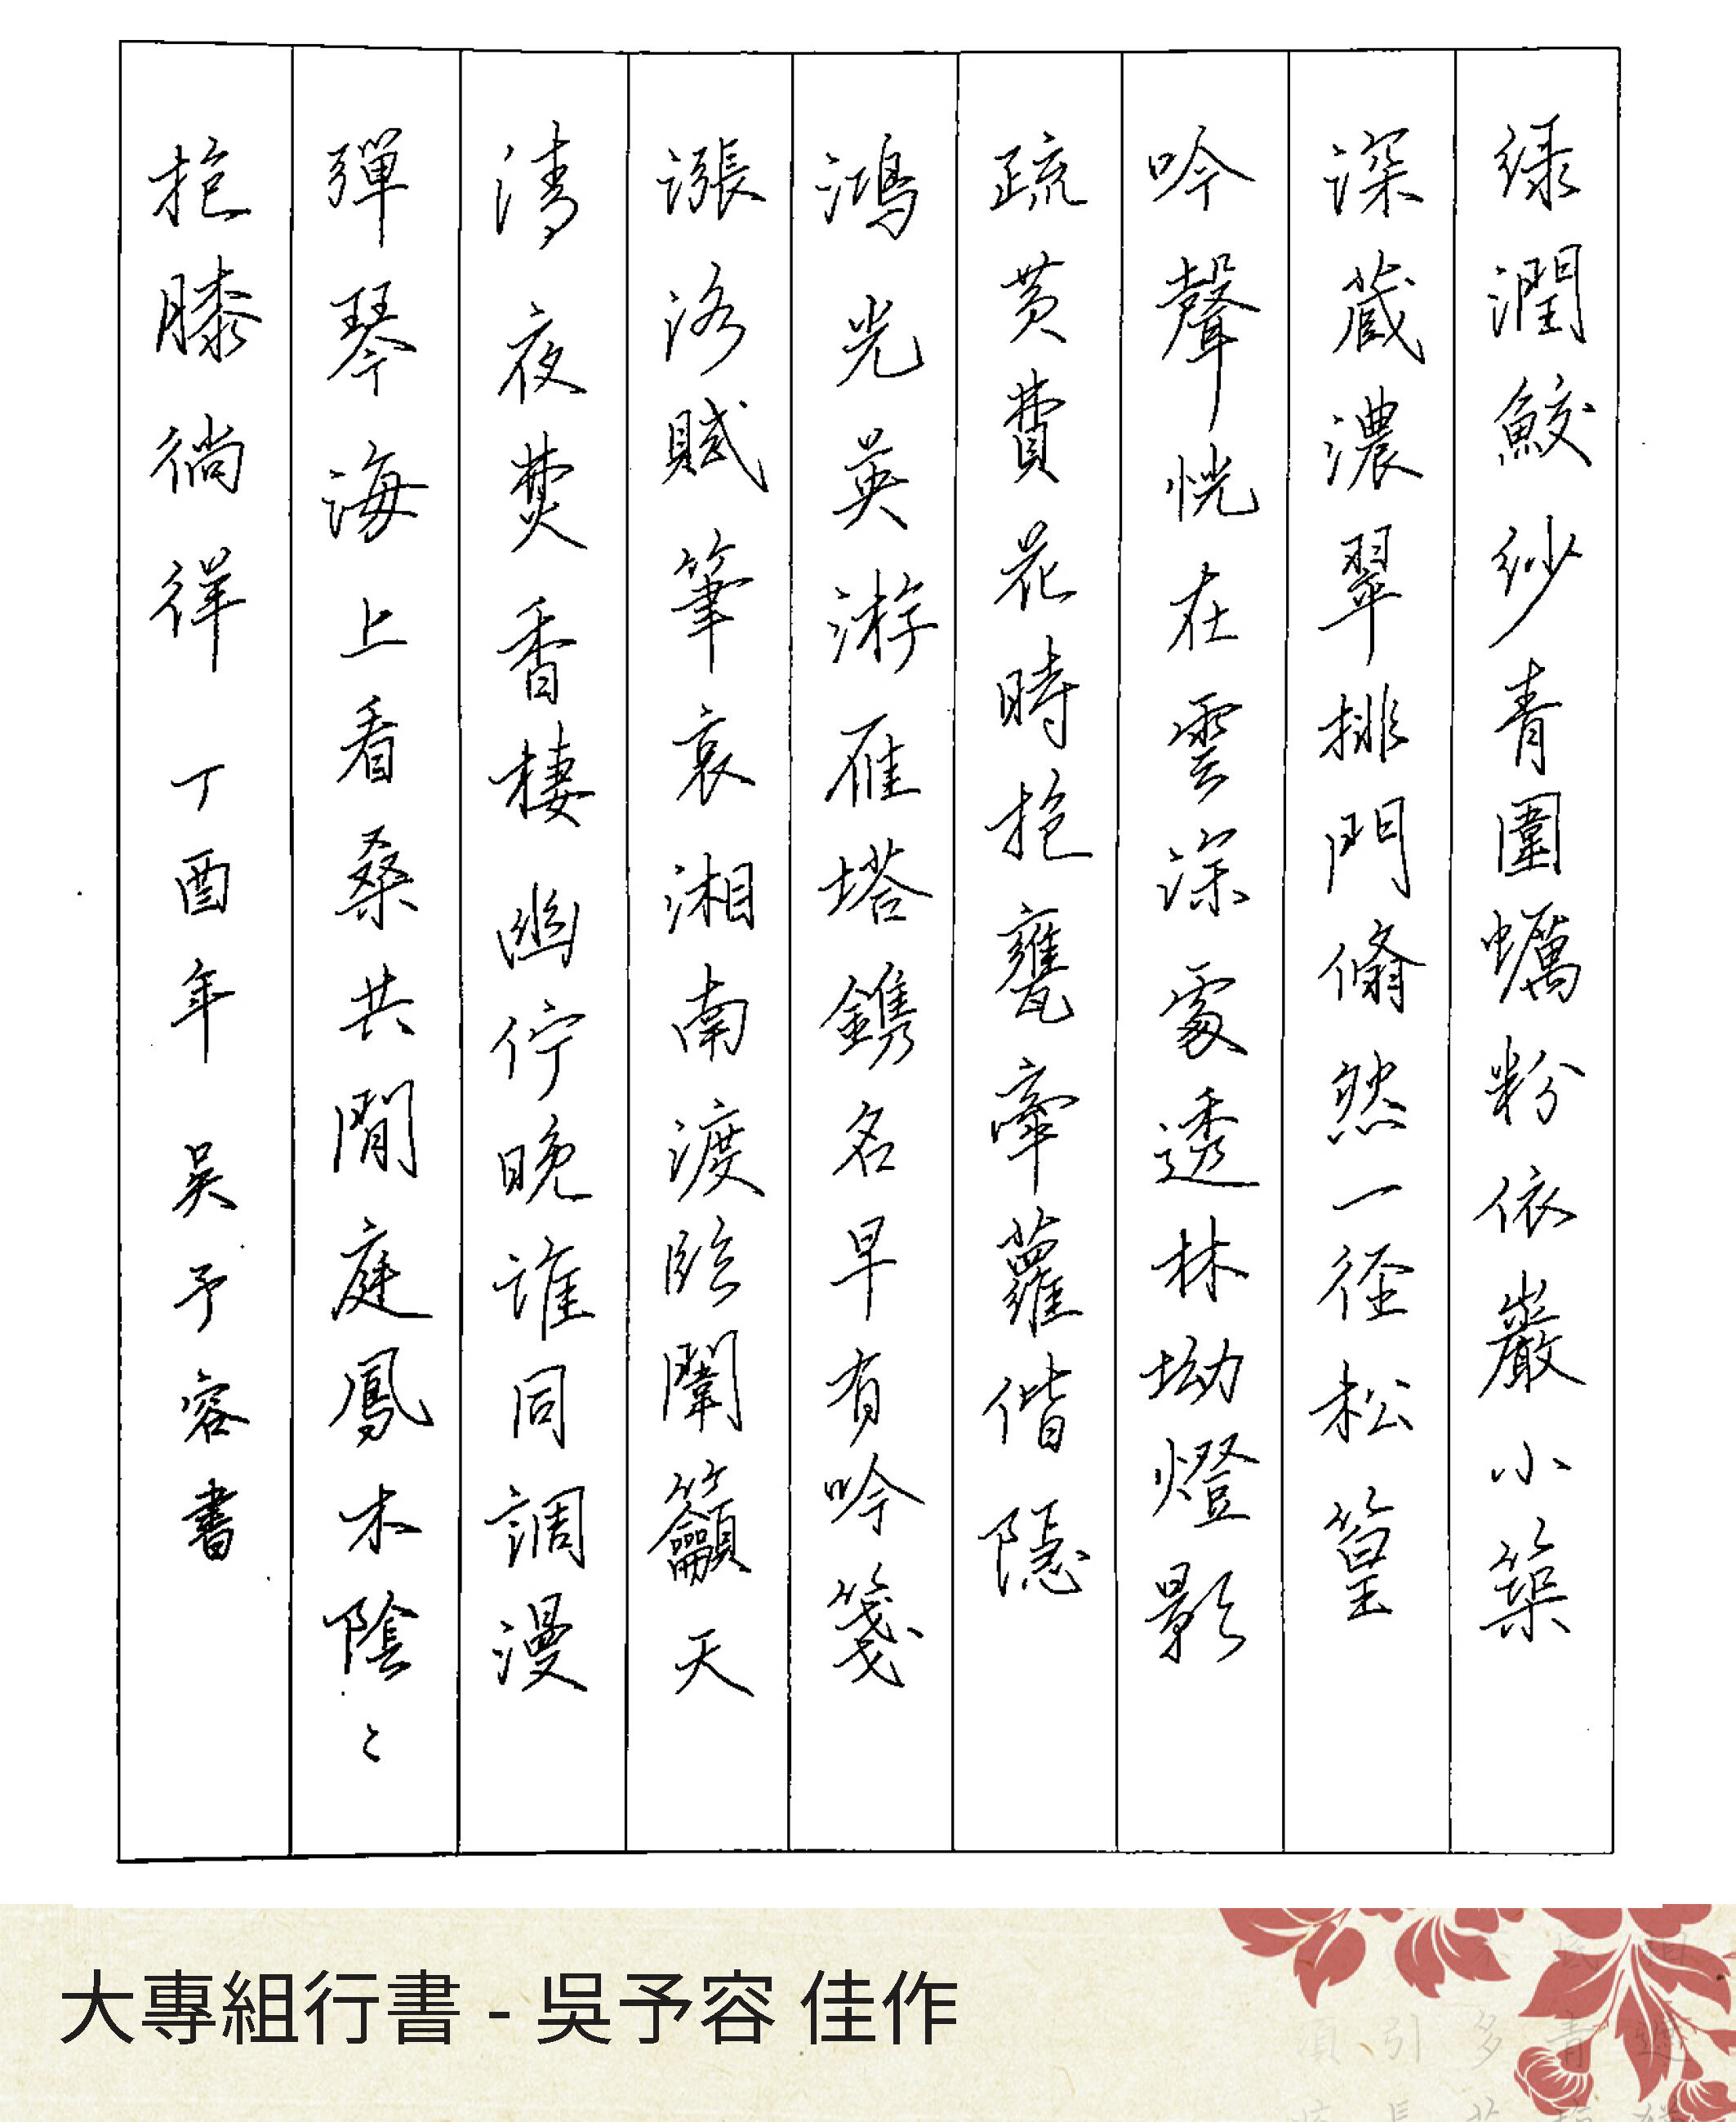 綠潤鮫紗青圍蠣粉依巖小築
深藏濃翠排門翛然一徑松篁
吟聲恍在雲深處透林坳燈影
疏黃費花時抱甕牽蘿偕隱
鴻光英游雁塔鐫名早有吟箋
漲洛賦筆哀湘南渡臨闈籲天
清夜焚香棲幽佇晚誰同調漫
彈琴海上看桑共閒庭鳳木陰〻
抱膝徜徉 丁酉年 吳予容書
大專組行書 - 吳予容 佳作